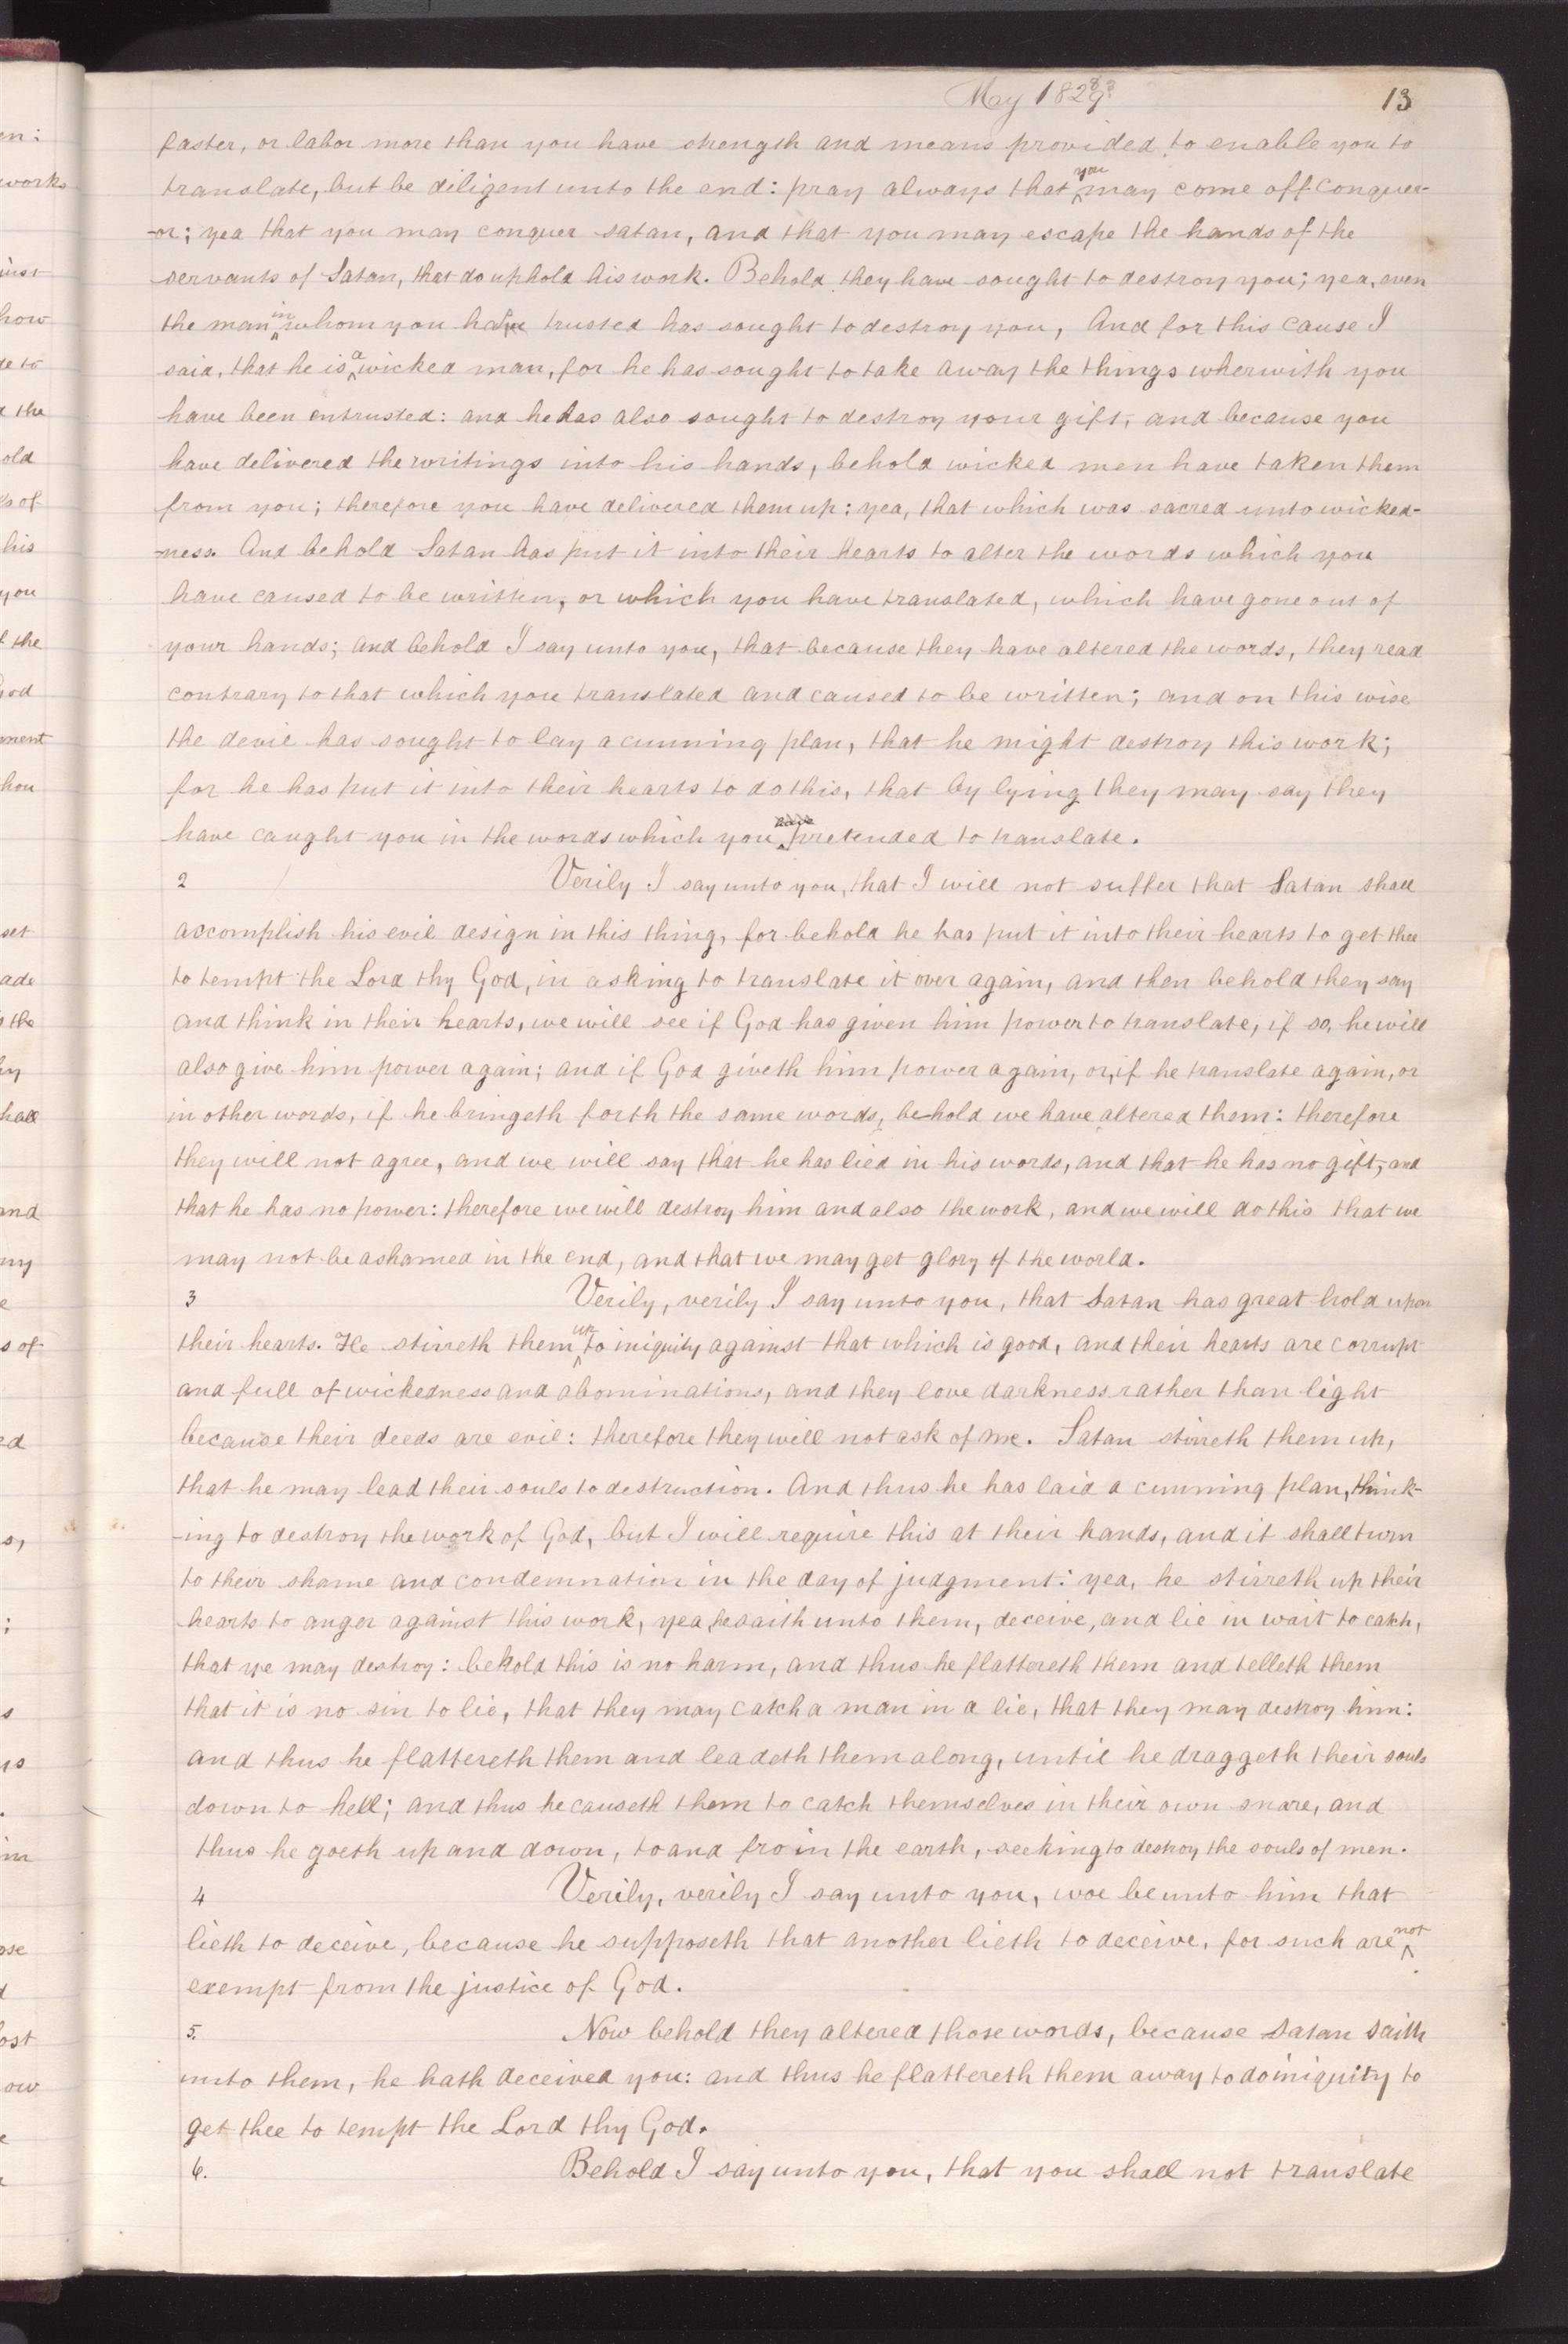 May 1829?
13
faster, or labor more than you have strength and means provided to enable you to
translate, but be diligent unto the end: pray always that you may come off conquer-
-or; yea that you may conquer satan, and that you may escape the hands of the
servants of Satan, that do uphold his work. Behold they have sought to destroy you; yea, even
the man in whom you have trusted has sought to destroy you, And for this cause I
said, that he is a wicked man, for he has sought to take away the things wherwith you
have been entrusted: and he has also sought to destroy your gift, and because you
have delivered the writings into his hands, behold wicked men have taken them
from you; therefore you have delivered them up: yea, that which was sacred unto wicked-
-ness. And behold Satan has put it into their hearts to alter the words which you
have caused to be written, or which you have translated, which have gone out of
your hands; and behold I say unto you, that because they have altered the words, they read
contrary to that which you translated and caused to be written; and on this wise
the devil has sought to lay a cunning plan, that he might destroy this work;
for he has put it into their hearts to do this, that by lying they may say they
have caught you in the words which you have pretended to translate.
2 Verily I say unto you, that I will not suffer that Satan shall
accomplish his evil design in this thing, for behold he has put it into their hearts to get thee
to tempt the Lord thy God, in asking to translate it over again, and then behold they say
and think in their hearts, we will see if God has given him power to translate, if so, he will
also give him power again; and if God giveth him power again, or, if he translate again, or
in other words, if he bringeth forth the same words, behold we have altered them: therefore
they will not agree, and we will say that he has lied in his words, and that he has no gift, and
that he has no power: therefore we will destroy him and also the work, and we will do this that we
may not be ashamed in the end, and that we may get glory of the world.
3 Verily, verily I say unto you, that Satan has great hold upon
their hearts. He stirreth them up to iniquity against that which is good, and their hearts are corrupt
and full of wickedness and abominations, and they love darkness rather than light
because their deeds are evil: therefore they will not ask of me. Satan stirreth them up,
that he may lead their souls to destruction. And thus he has laid a cunning plan, think-
-ing to destroy the work of God, but I will require this at their hands, and it shall turn
to their shame and condemnation in the day of judgment: yea, he stirreth up their
hearts to anger against this work, yea, he saith unto them, deceive, and lie in wait to catch,
that ye may destroy: behold this is no harm, and thus he flattereth them and telleth them
that it is no sin to lie, that they may catch a man in a lie, that they may destroy him:
and thus he flattereth them and leadeth them along, until he draggeth their souls
down to hell; and thus he causeth them to catch themselves in their own snare, and
thus he goeth up and down, to and fro in the earth, seeking to destroy the souls of men.
4 Verily, verily I say unto you, woe be unto him that
lieth to deceive, because he supposeth that another lieth to deceive, for such are not
exempt from the justice of God.
5. Now behold they altered those words, because Satan saith
unto them, he hath deceived you: and thus he flattereth them away to do iniquity to
get thee to tempt the Lord thy God.
6. Behold I say unto you, that you shall not translate